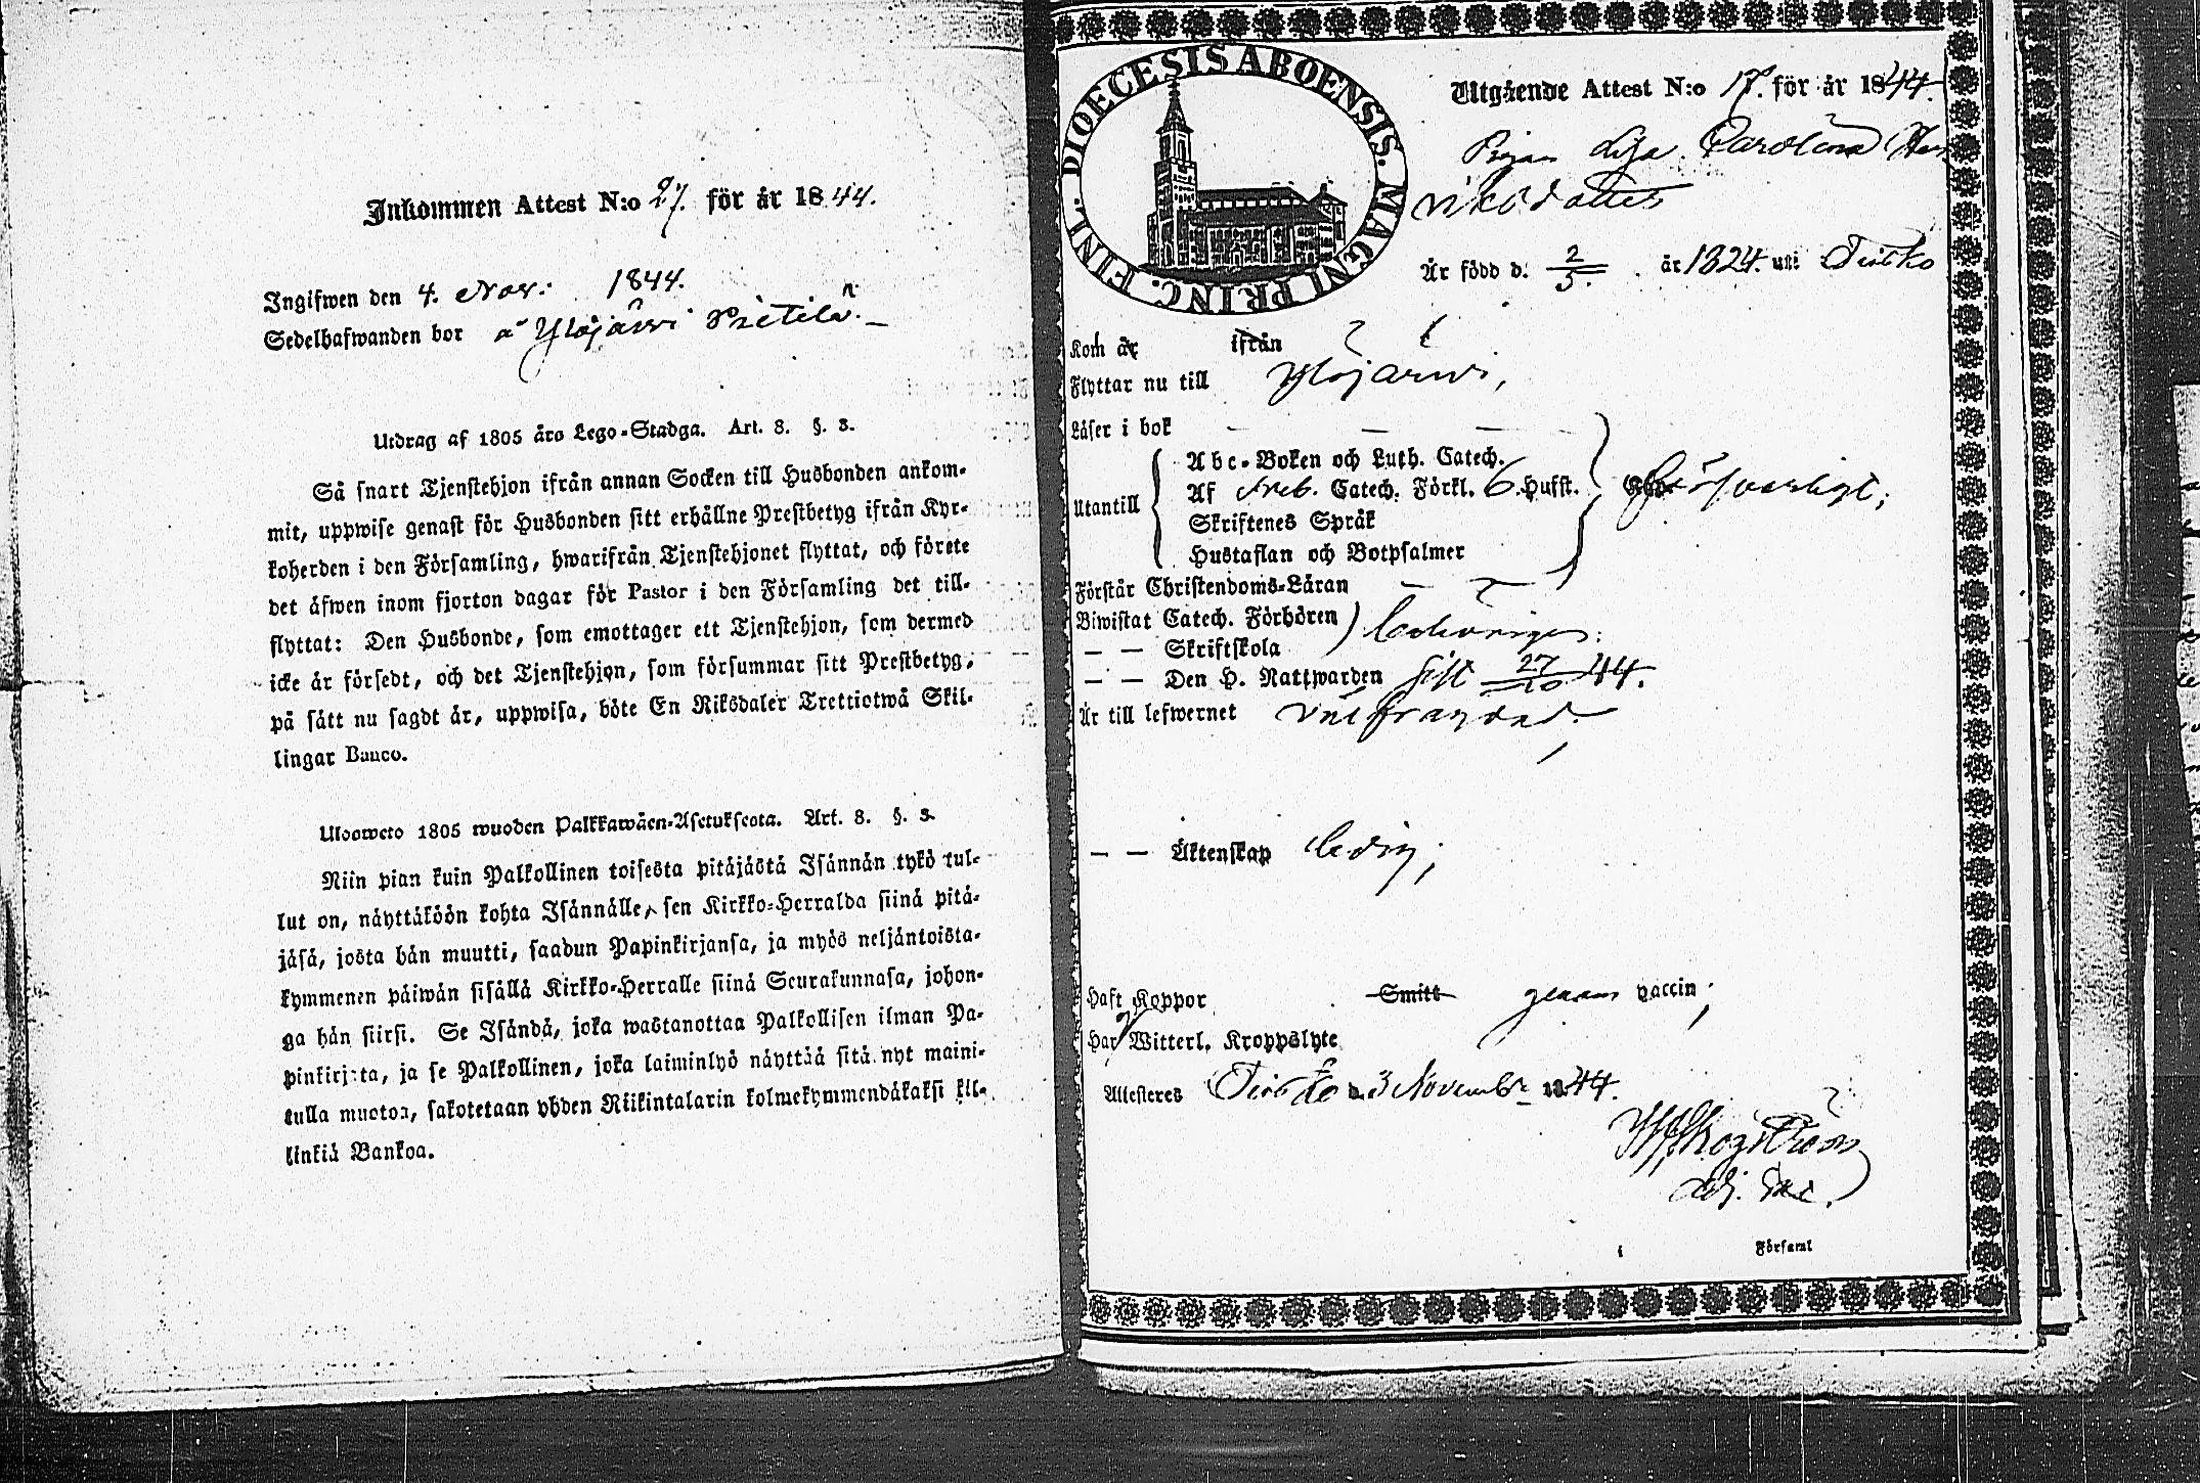 Inkommen Attest N:o 27. för år 1844.
Ingifwen den 4. Nov: 1844.
Sedelhafwanden bor å Ylöjärvi Pietilä.
Utdrag af 1805 års Lego-Stadga. Art. 8. §. 3.
Så snart Tjenstehjon ifrån annan Socken till Husbonden ankom-
mit, uppwise genast för Husbonden sitt erhållne Prestbetyg ifrån Kyr-
koherden i den Församling, hwarifrån Tjenstehjonet flyttat, och förete
det äfwen inom fjorton dagar för Pastor i den Församling det till-
flyttat: Den Husbonde, som emottager ett Tjenstehjon, som dermed
icke är försedt, och det Tjenstehjon, som försummar sitt Prestbetyg,
på sätt nu sagdt är, uppwisa, böte En Riksdaler Trettiotwå Skil-
lingar Banco.
Uloosweto 1805 wuoden Palkkawäen-Asetuksesta. Art. 8. §. 3.
Niin pian kuin Palkollinen toisesta pitäjästä Isännän tykö tul-
lut on, näyttäköön kohta Isännälle, sen Kirkko-Herralda siinä pitä-
jäsä, josta hän muutti, saadun Papinkirjansa, ja myös neljäntoista-
kymmenen päiwän sisällä Kirkko-Herralle siinä Seurakunnasa, johon-
ga hän siirsi. Se Isändä, joka wastanottaa Palkollisen ilman Pa-
pinkirjata, ja se Palkollinen, joka laiminlyö näyttää sitä nyt maini-
tulla muotoa, sakotetaan yhden Riikintalarin kolmekymmendäkaksi kil-
linkiä Bankoa.
DIOECESIS ABOENSIS. MAGNI PRINC. FINL.
Utgående Attest N:o 17. för år 1844.
Pigan Lisa Carolina
Är född d. 2/5. år 1824. uti Teisko
Kom år ifrån
Flyttar nu till Ylöjärvi,
Läser i bok — — —
Utantill
Abc-Boken och Luth. Catech.
Af Sveb. Catech. Förkl. 6 Hufst. försvarligt;
Skriftenes Språk
Hustaflan och Botpsalmer
Förstår Christendoms-Läran
Biwistat Catech. Förhören
— — Skriftskola
— — Den H. Nattwarden sist 27/10 44.
Är till lefwernet väl frägdad.
— — Äktenskap ledig;
Haft Koppor Smitt genom vaccin;
Har Witterl. Kroppslyte
Attesteras Teisko d. 3 November 1844.
Adj. Sac.
i Församl